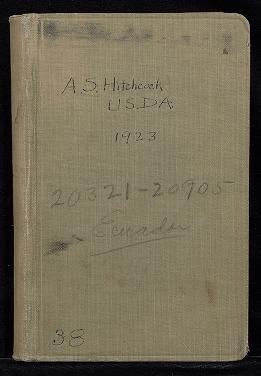 A.S. Hitchcock
U.S.D.A.
1923
20321-20905
Ecuador
38